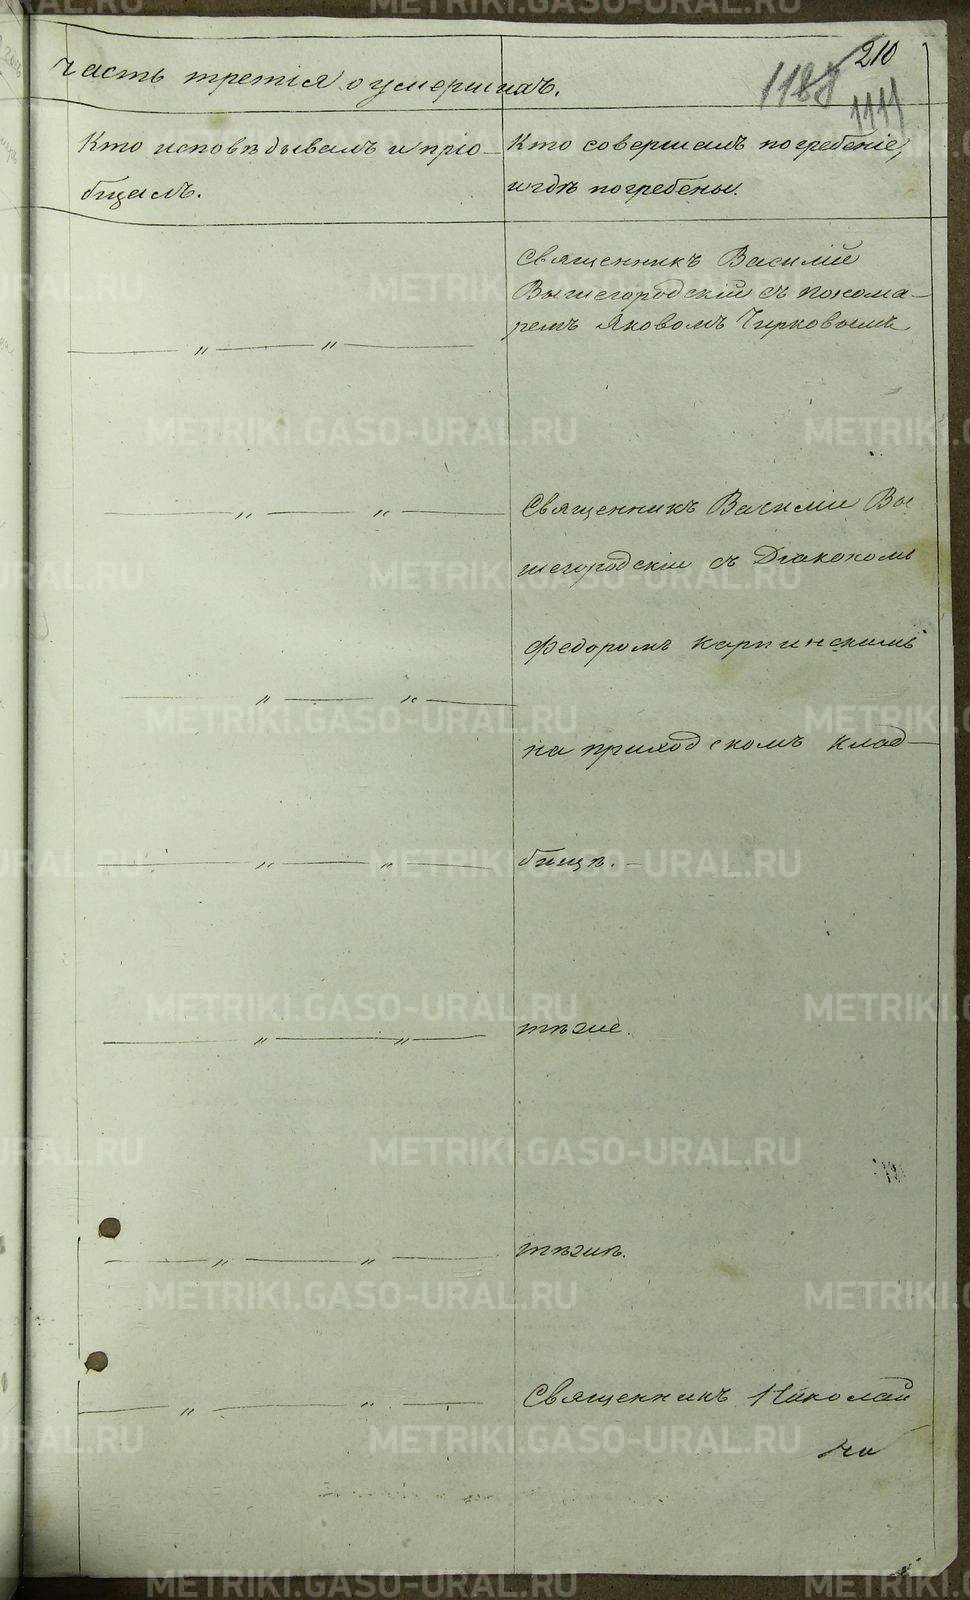 210
1188
1111
Часть третія о умершихъ.
Кто исповѣдывалъ и пріо-
бщалъ.
Кто совершалъ погребеніе,
и гдѣ погребены.
Священникъ Василій
Вышегородскій съ понома-
ремъ Яковомъ Чирковымъ
Священникъ Василій Вы
шегородскій съ Діакономъ
Федоромъ Карпинскимъ
на приходскомъ клад-
бищѣ. -
тѣже.
тѣжѣ.
Священникъ Николай
METRIKI.GASO-URAL.RU